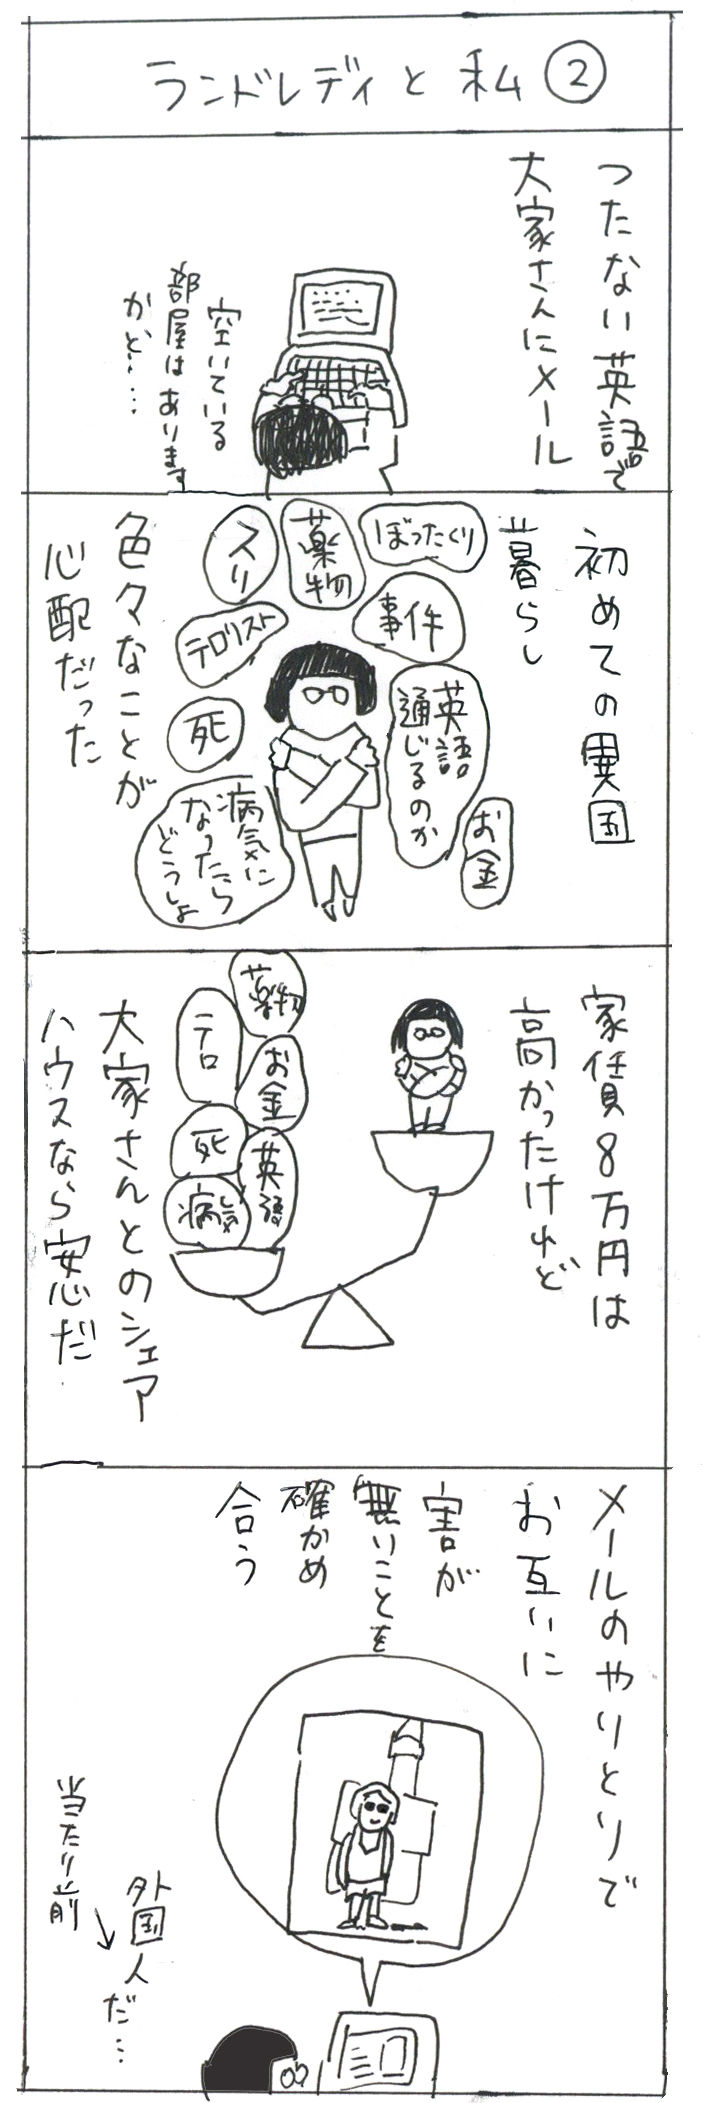 ランドレディと私②
つたない英語で
大家さんにメール
空いている
部屋はあります
かど…
初めての異国
暮らし
ぼったくり
薬物
スリ
事件
テロリスト
英語
通じるのか
死
お金
病気に
なったら
どうしよ
色々なことが
心配だった
家賃8万円は
高かったけれど
薬物
テロ
お金
死
英語
病気
大家さんとのシェア
ハウスなら安心だ
メールのやりとりで
お互いに
害が
無いことを
確かめ
合う
外国人だ…
当たり前